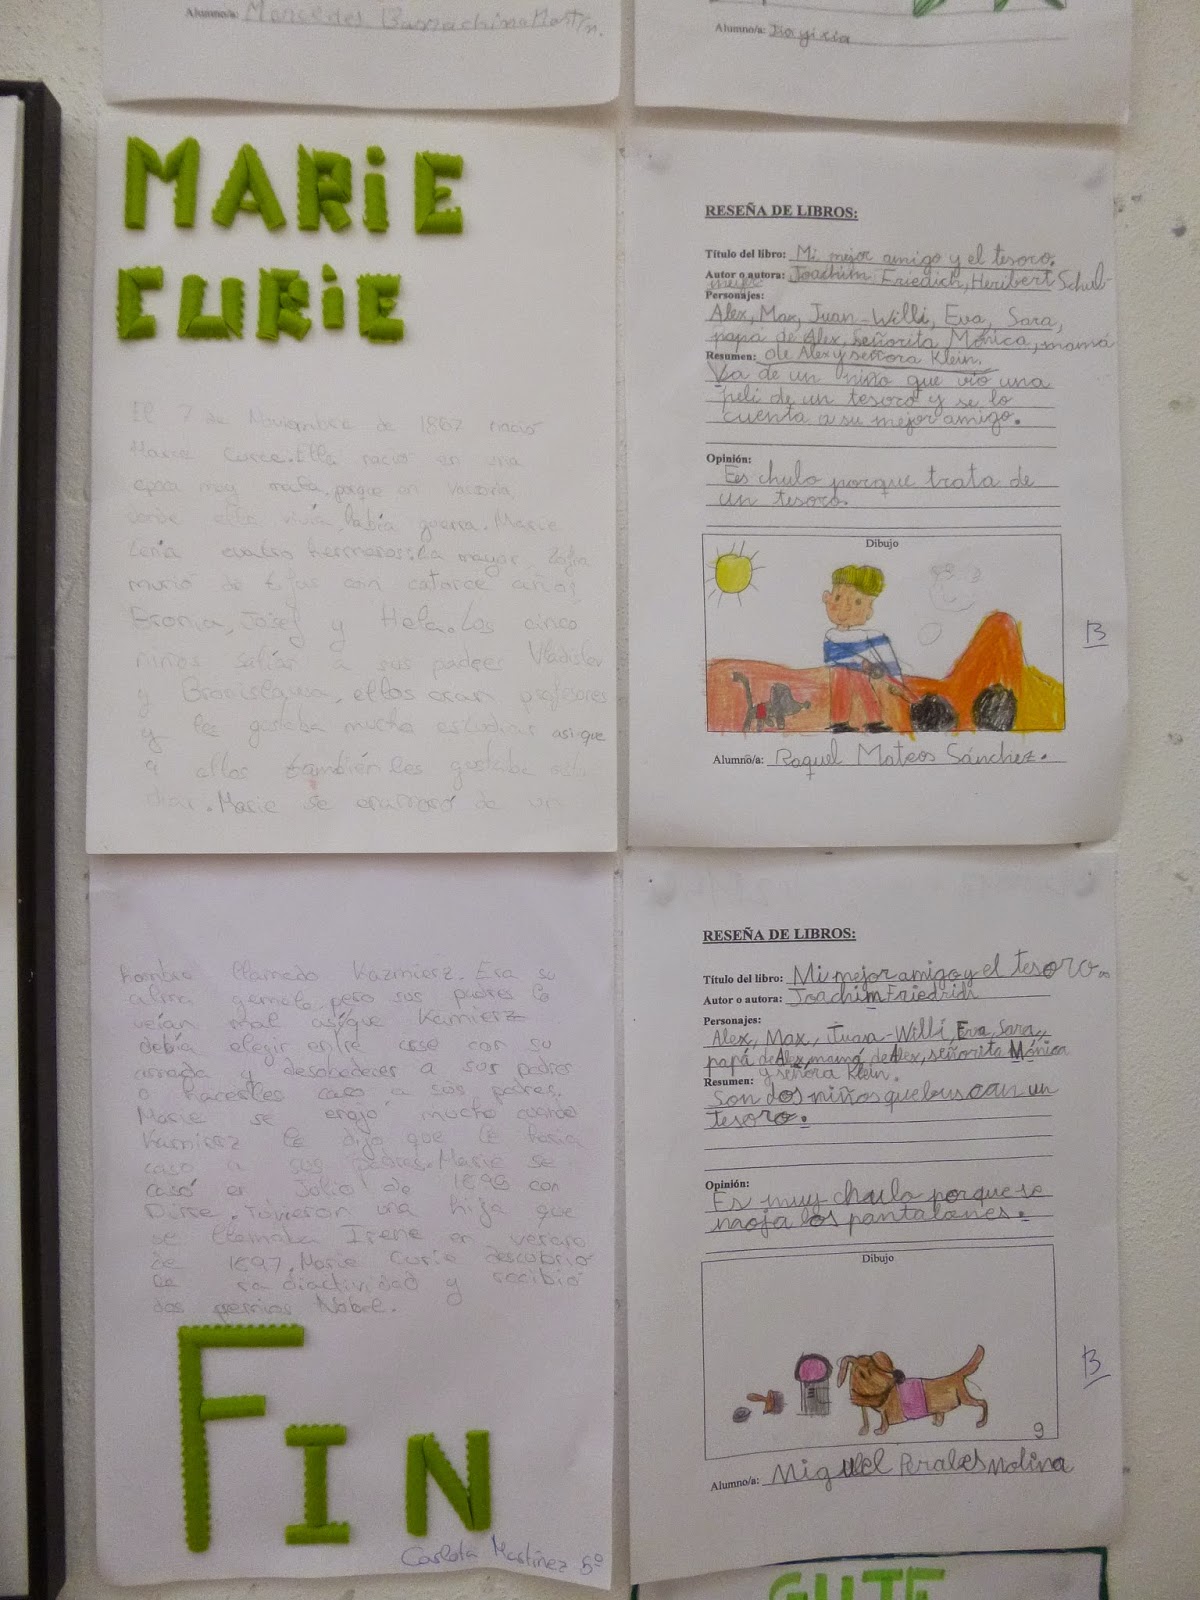 Alumno/a: Mercedes Barrachina Martín.
Alumno/a:
MARiE
CURiE
El 7 de Noviembre de 1867 nació
Marie Curie. Ella nació en una
época muy mala, porque en Varsovia,
donde ella vivía había guerra. Marie
tenía cuatro hermanos: la mayor, Zofia
murió de tifus con catorce años,
Bronia, Josef y Hela. Los cinco
niños salían a sus padres Vladislav
y Bronislawa, ellos eran profesores
y les gustaba mucho estudiar asi que
a ellos también les gustaba estu
diar. Marie se enamoró de un
hombre llamado Kazmierz. Era su
alma gemela, pero sus padres lo
veían mal asíque Kamierz
debía elegir entre case con su
amada y desobedecer a sus padres
o hacerles caso a sus padres.
Marie se enojó mucho cuando
Kamierz le dijo que le hacía
caso a sus padres. Marie se
casó en Julio de 1895 con
Pirre. Tuvieron una hija que
se llamaba Irene en verano
de 1897. Marie Curie descubrió
la radiactividad y recibió
dos premios Nobre.
FIN
Carlota Martínez 5º
RESEÑA DE LIBROS:
Título del libro: Mi mejor amigo y el tesoro.
Autor o autora: Joachim Friedich, Heribert Schul-
meyer
Personajes:
Alex, Max, Juan-Willi, Eva, Sara,
papá de Alex, Señorita Mónica, mamá
Resumen: de Alex y señora Klein.
Va de un niño que vio una
peli de un tesoro y se lo
cuenta a su mejor amigo.
Opinión:
Ees chulo porque trata de
un tesoro.
Dibujo
B
Alumno/a: Raquel Mateos Sánchez.
RESEÑA DE LIBROS:
Título del libro: Mi mejor amigo y el tesoro.
Autor o autora: Joachim Friedrich
Personajes:
Alex, Max, Juan-Willi, Eva, Sara,
papá de Alex, mamá de Alex, señorita Mónica
Resumen: y señora Klein.
Son dos niños que buscan un
tesoro.
Opinión:
Es muy chulo porque se
moja los pantalones.
Dibujo
9
B
Alumno/a: Miguel Perales Molina
GUTE